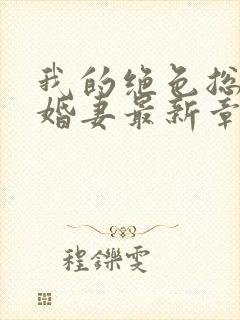 我的绝色总
婚妻最新章
程鑠雯